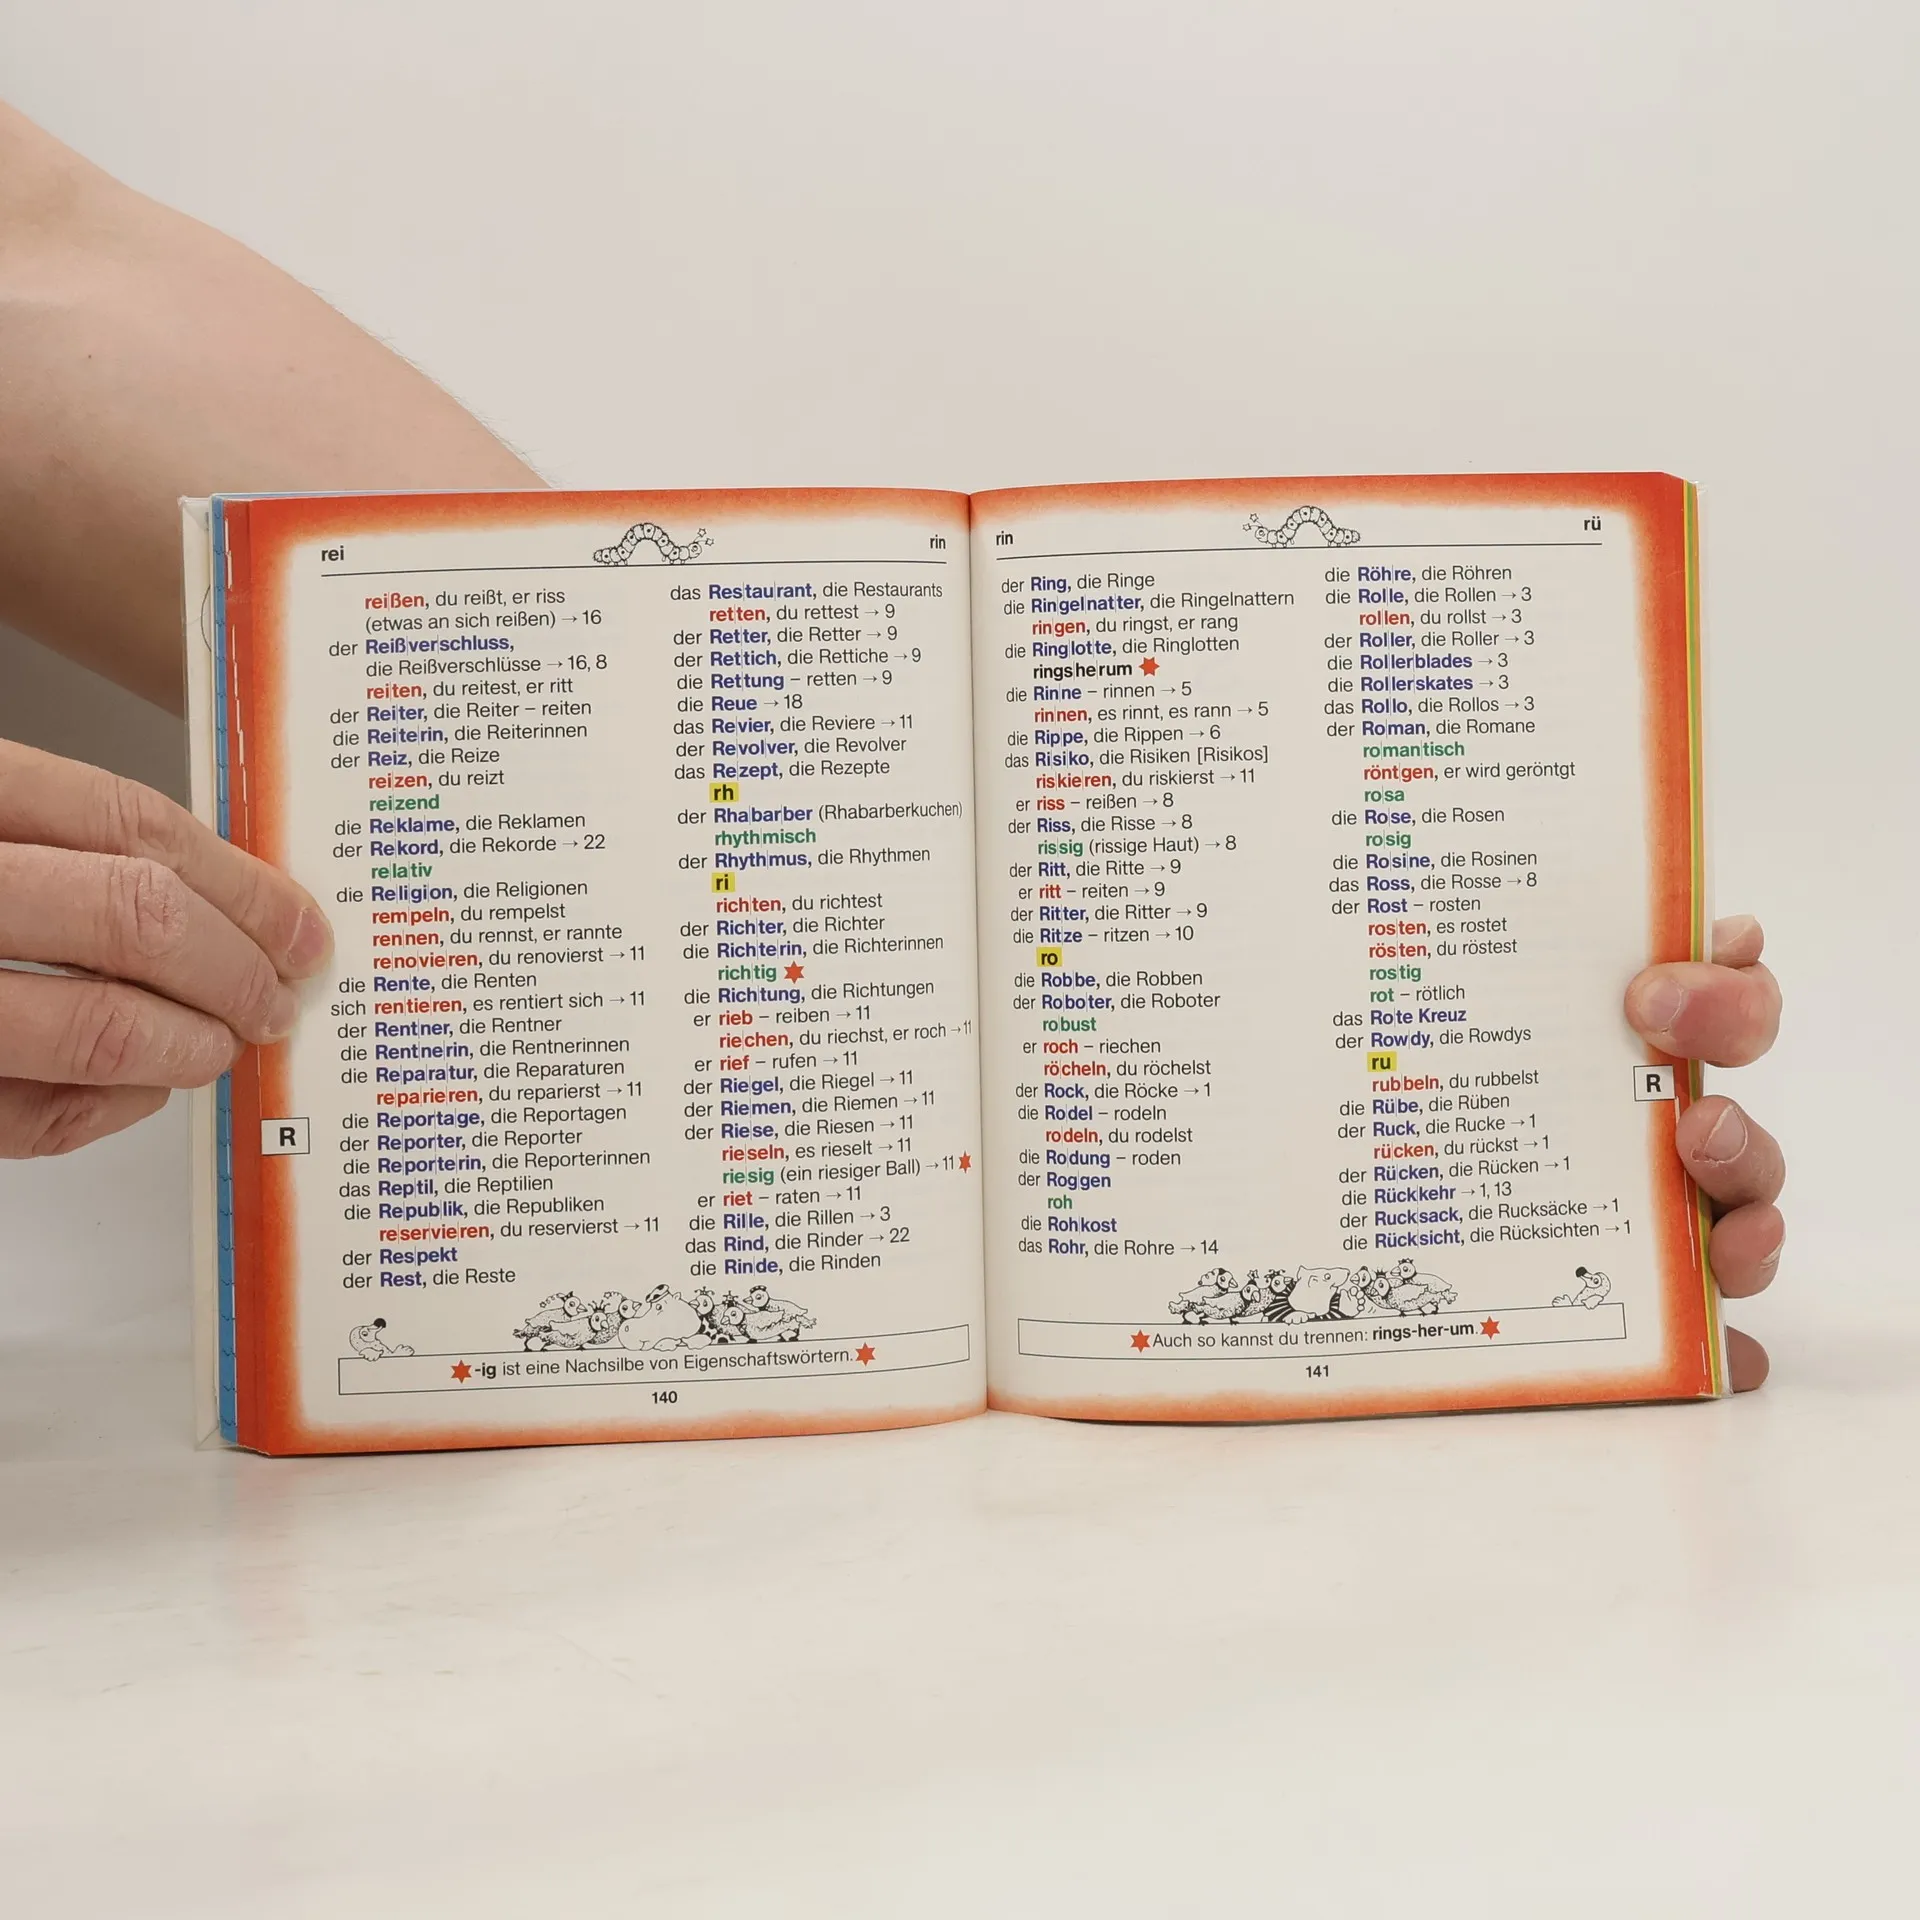 rei
rin
reißen, du reißt, er riss
(etwas an sich reißen) → 16
der Reißverschluss,
die Reißverschlüsse → 16, 8
reiten, du reitest, er ritt
der Reiter, die Reiter – reiten
die Reiterin, die Reiterinnen
der Reiz, die Reize
reizen, du reizt
reizend
die Reklame, die Reklamen
der Rekord, die Rekorde → 22
relativ
die Religion, die Religionen
rempeln, du rempelst
rennen, du rennst, er rannte
renovieren, du renovierst → 11
die Rente, die Renten
sich rentieren, es rentiert sich → 11
der Rentner, die Rentner
die Rentnerin, die Rentnerinnen
die Reparatur, die Reparaturen
reparieren, du reparierst → 11
die Reportage, die Reportagen
der Reporter, die Reporter
die Reporterin, die Reporterinnen
das Reptil, die Reptilien
die Republik, die Republiken
reservieren, du reservierst → 11
der Respekt
der Rest, die Reste
das Restaurant, die Restaurants
retten, du rettest → 9
der Retter, die Retter → 9
der Rettich, die Rettiche → 9
die Rettung – retten → 9
die Reue → 18
das Revier, die Reviere → 11
der Revolver, die Revolver
das Rezept, die Rezepte
rh
der Rhabarber (Rhabarberkuchen)
rhythmisch
der Rhythmus, die Rhythmen
ri
richten, du richtest
der Richter, die Richter
die Richterin, die Richterinnen
richtig
die Richtung, die Richtungen
er rieb – reiben → 11
riechen, du riechst, er roch → 11
er rief – rufen → 11
der Riegel, die Riegel → 11
der Riemen, die Riemen → 11
der Riese, die Riesen → 11
rieseln, es rieselt → 11
riesig (ein riesiger Ball) → 11
er riet – raten → 11
die Rille, die Rillen → 3
das Rind, die Rinder → 22
die Rinde, die Rinden
R
-ig ist eine Nachsilbe von Eigenschaftswörtern.
140
rin
rü
der Ring, die Ringe
die Ringelnatter, die Ringelnattern
ringen, du ringst, er rang
die Ringlotte, die Ringlotten
ringsherum
die Rinne – rinnen → 5
rinnen, es rinnt, es rann → 5
die Rippe, die Rippen → 6
das Risiko, die Risiken [Risikos]
riskieren, du riskierst → 11
er riss – reißen → 8
der Riss, die Risse → 8
rissig (rissige Haut) → 8
der Ritt, die Ritte → 9
er ritt – reiten → 9
der Ritter, die Ritter → 9
die Ritze – ritzen → 10
ro
die Robbe, die Robben
der Roboter, die Roboter
robust
er roch – riechen
röcheln, du röchelst
der Rock, die Röcke → 1
die Rodel – rodeln
rodeln, du rodelst
die Rodung – roden
der Roggen
roh
die Rohkost
das Rohr, die Rohre → 14
die Röhre, die Röhren
die Rolle, die Rollen → 3
rollen, du rollst → 3
der Roller, die Roller → 3
die Rollerblades → 3
die Rollerskates → 3
das Rollo, die Rollos → 3
der Roman, die Romane
romantisch
röntgen, er wird geröntgt
rosa
die Rose, die Rosen
rosig
die Rosine, die Rosinen
das Ross, die Rosse → 8
der Rost – rosten
rosten, es rostet
rösten, du röstest
rostig
rot – rötlich
das Rote Kreuz
der Rowdy, die Rowdys
ru
rubbeln, du rubbelst
die Rübe, die Rüben
der Ruck, die Rucke → 1
rücken, du rückst → 1
der Rücken, die Rücken → 1
die Rückkehr → 1, 13
der Rucksack, die Rucksäcke → 1
die Rücksicht, die Rücksichten → 1
R
Auch so kannst du trennen: rings-her-um.
141